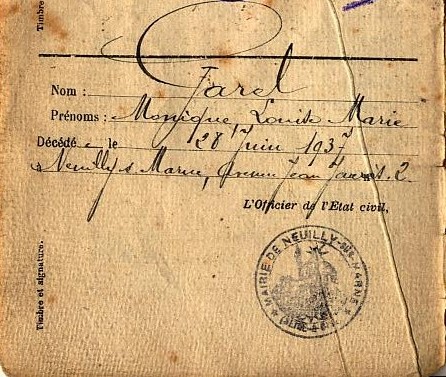 Timbre
Nom : Garel
Prénoms : Monique, Louise Marie
Décédée le 28 Juin 1937
Neuilly s. Marne, avenue Jean Jaurès. 2
L'Officier de l'État civil,
Timbre et signature.
MAIRIE DE NEUILLY-SUR-MARNE